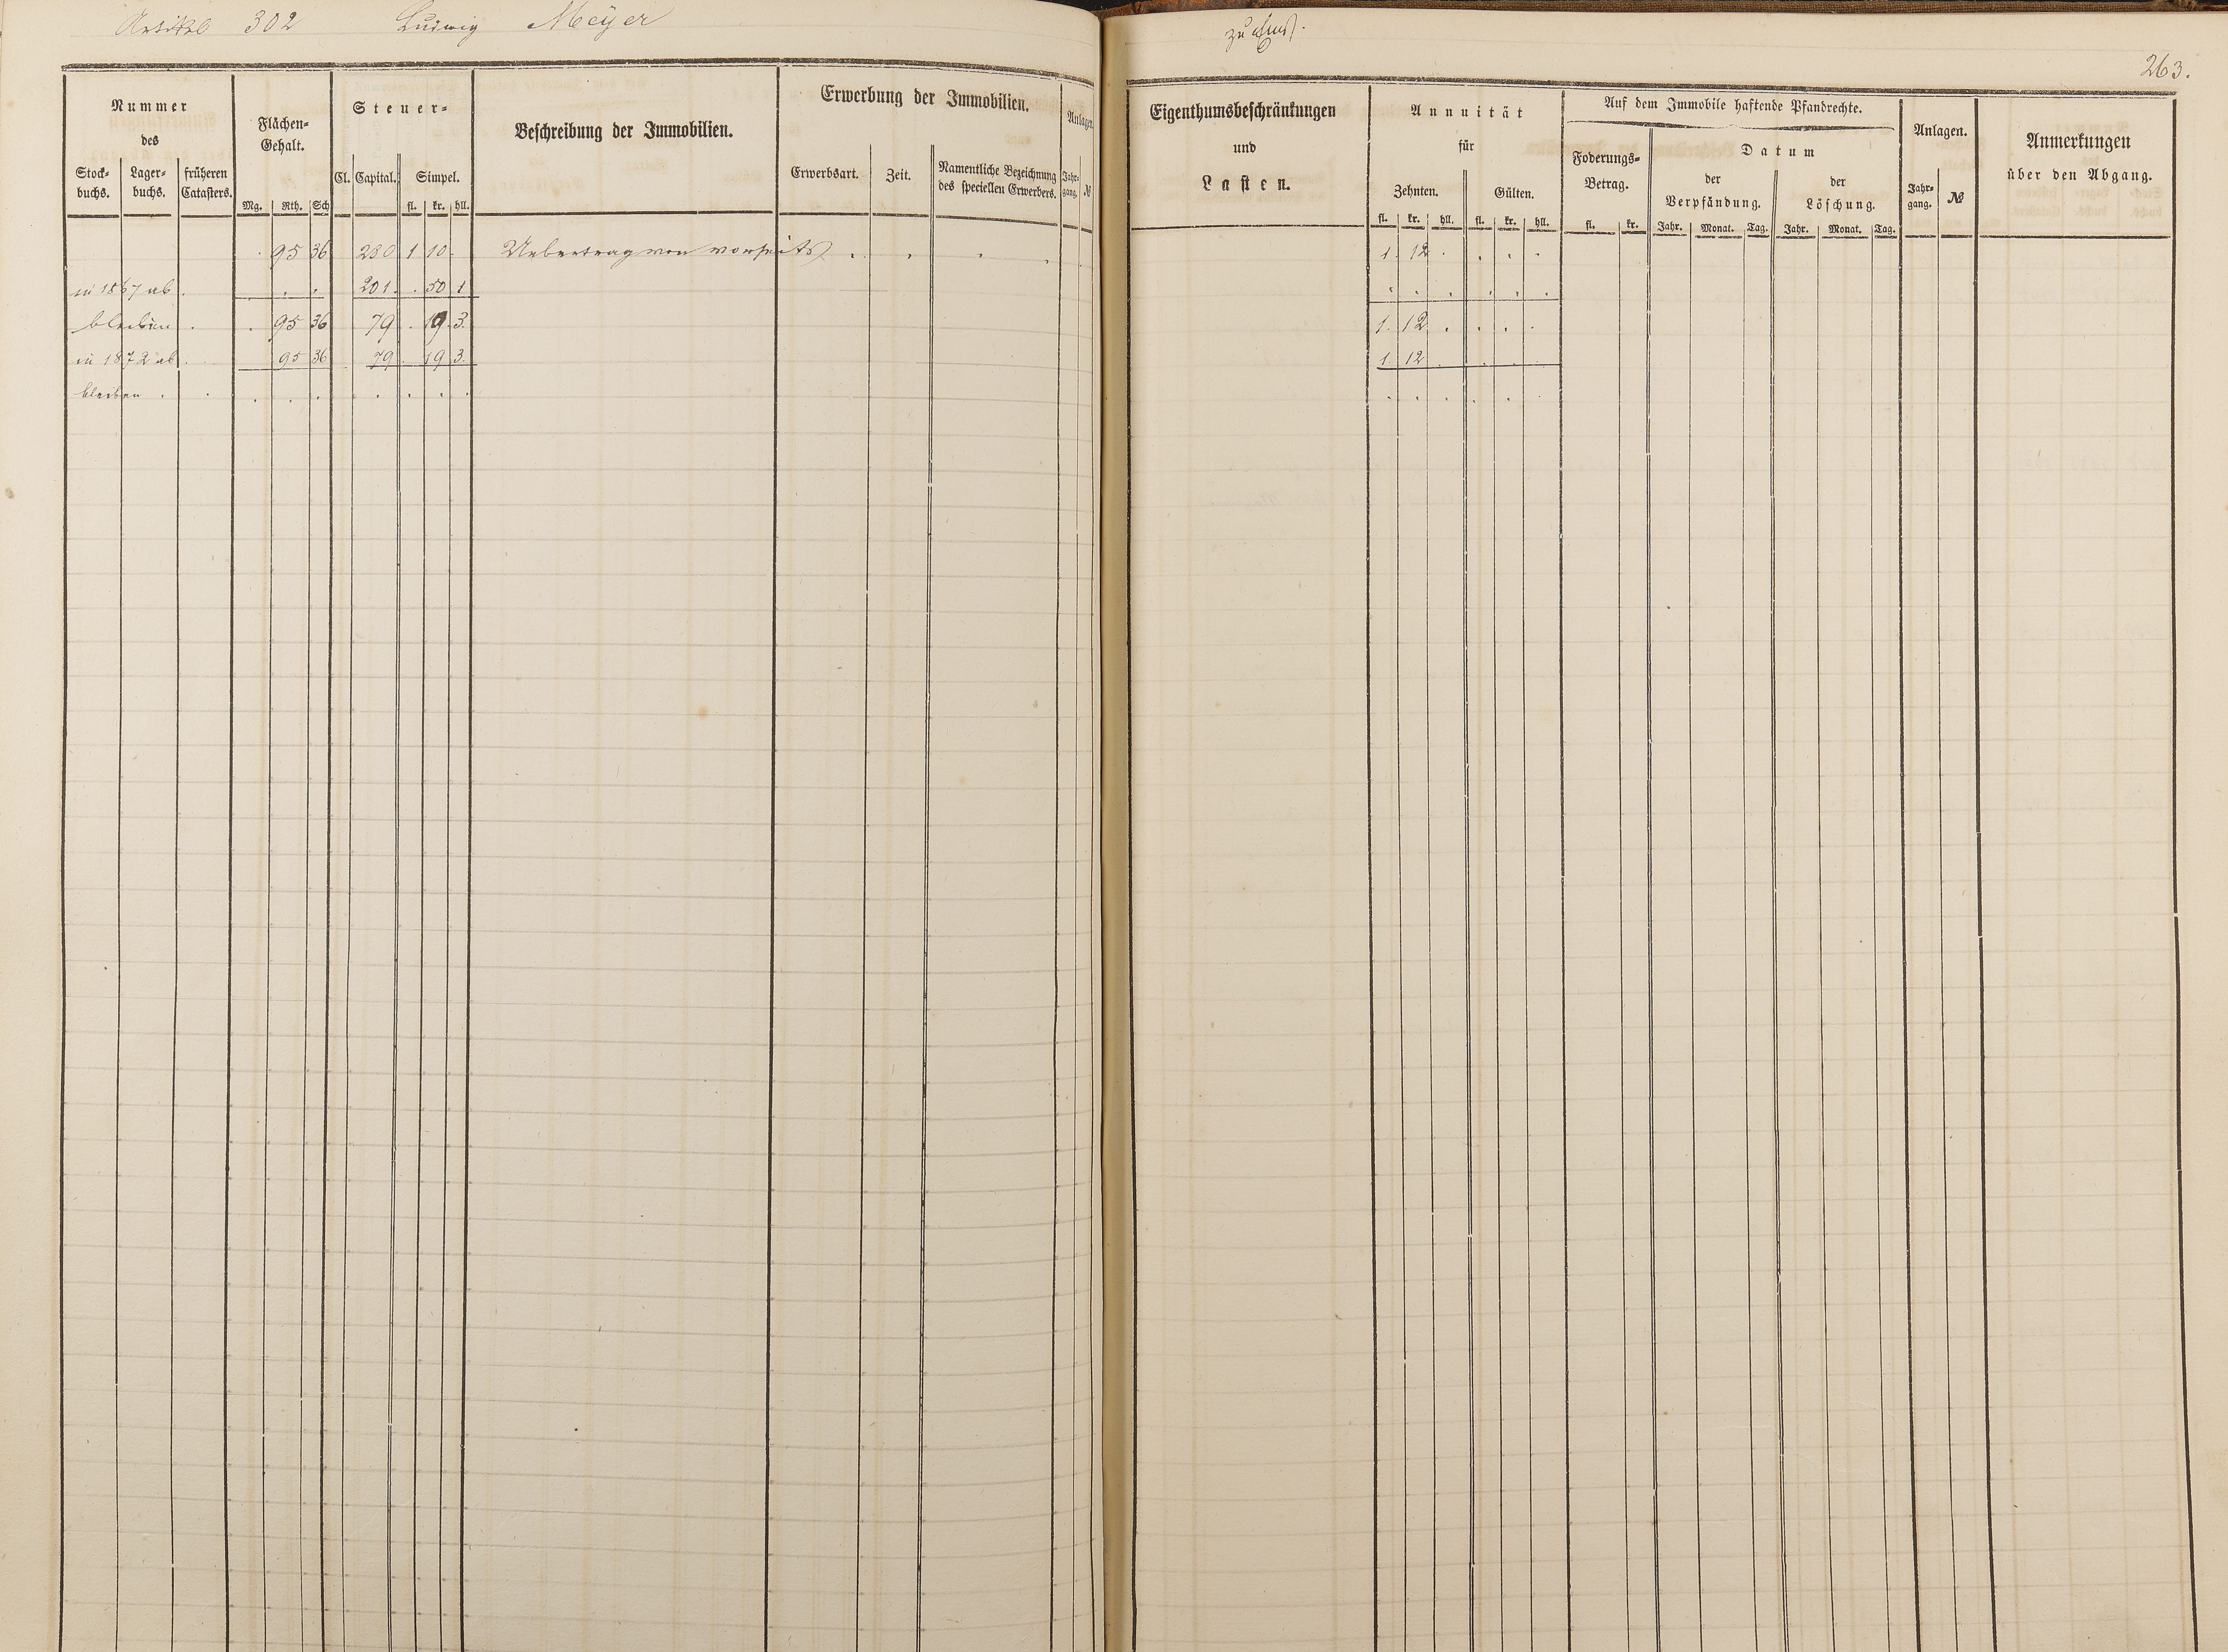 Artikel 302 Ludwig Meÿer
zu
263.
Nummer
des
Stock-
buchs.
Lager-
buchs.
früheren
Catasters.
Flächen-
Gehalt.
Mg. Rth. Sch
Steuer-
Cl. Capital. Simpel.
fl. kr. hll.
Beschreibung der Immobilien.
Erwerbung der Immobilien.
Erwerbsart. Zeit.
Namentliche Bezeichnung
des speciellen Erwerbers.
Anlagen
Jahr-
gang. №
Eigenthumsbeschränkungen
und
Lasten.
Annuität
für
Zehnten. Gülten.
fl. kr. hll. fl. kr. hll.
Auf dem Immobile haftende Pfandrechte.
Foderungs-
Betrag.
fl. kr.
Datum
der
Verpfändung.
Jahr. Monat. Tag.
der
Löschung.
Jahr. Monat. Tag.
Anlagen.
Jahr-
gang. №
Anmerkungen
über den Abgang.
. 95 36 280 1 10. Uebertrag von vorseits . . . . 1. 12 . . . .
in 1867 ab . . . . 201. . 50 1 . . . . . .
bleiben . . 95 36 79 . 19. 3. 1. 12 . . . .
in 1872 ab . 95 36 79 . 19 3. 1. 12 . . . .
bleiben . . . . . . . . . . . . . . .